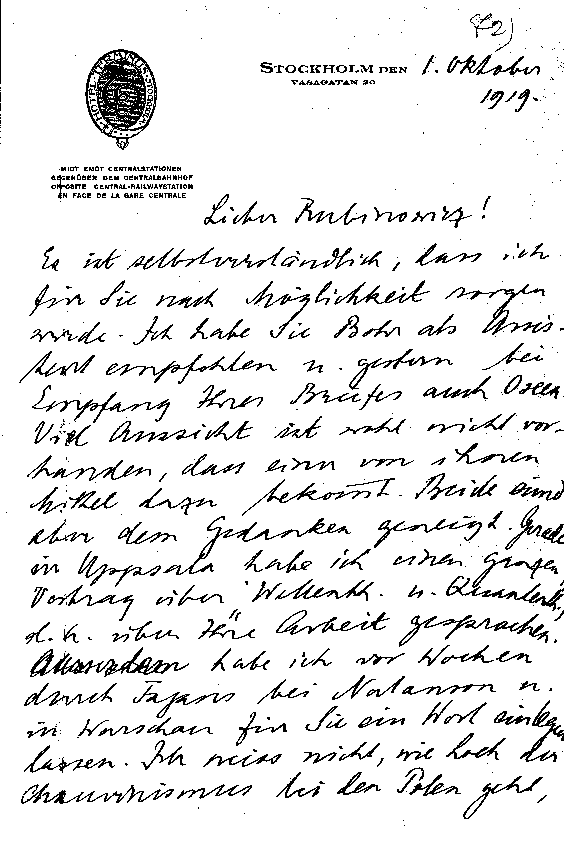 (72)
HOTEL TERMINUS STOCKHOLM
STOCKHOLM DEN 1. Oktober
VASAGATAN 20
1919.
MIDT EMOT CENTRALSTATIONEN
GEGENÜBER DEM CENTRALBAHNHOF
OPPOSITE CENTRAL-RAILWAYSTATION
EN FACE DE LA GARE CENTRALE
Lieber Rubinowicz!
Es ist selbstverständlich, dass ich
für Sie nach Möglichkeit sorgen
werde. Ich habe Sie Bohr als Assis-
tent empfohlen u. gestern bei
Empfang Ihres Briefes auch Oseen.
Viel Aussicht ist wohl nicht vor-
handen, dass einer von ihnen
Mittel dazu bekommt. Beide sind
aber dem Gedanken geneigt. Gerade
in Uppsala habe ich einen grossen
Vortrag über Wellenth. u. Quantenth.,
d. h. über Ihre Arbeit gesprochen.
Ausserdem habe ich vor Wochen
durch Fajans bei Natanson u.
in Warschau für Sie ein Wort einlegen
lassen. Ich weiss nicht, wie hoch der
Chauvinismus bei den Polen geht,